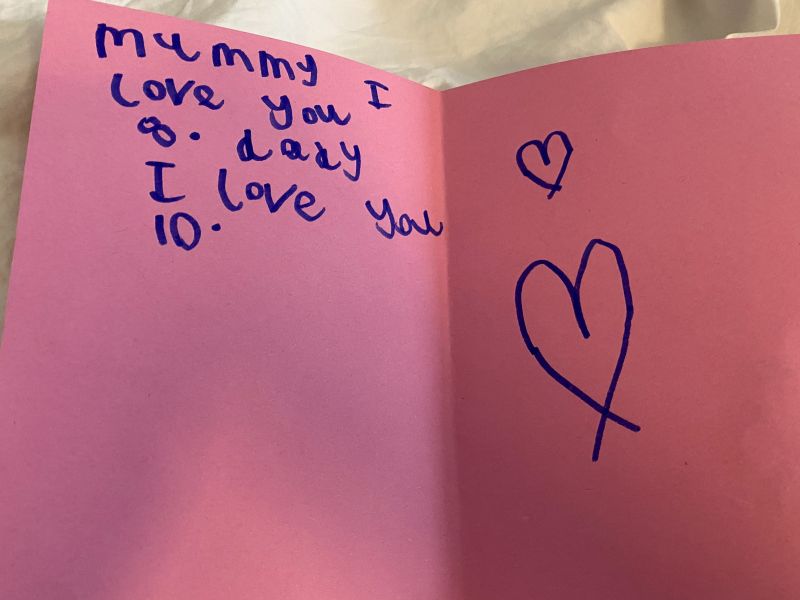 mummy I
love you
8. dady
I love you
10.